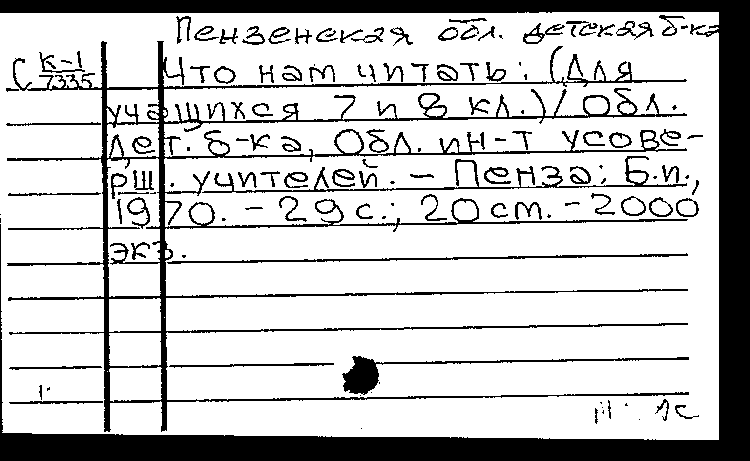 Пензенская обл. детская б-ка
С К-1/7335 Что нам читать: (Для
учащихся 7 и 8 кл.)/ Обл.
дет. б-ка, Обл. ин-т усове-
рш. учителей. – Пенза: Б.и.,
1970. – 29 с.; 20 см. – 2000
экз.
1.